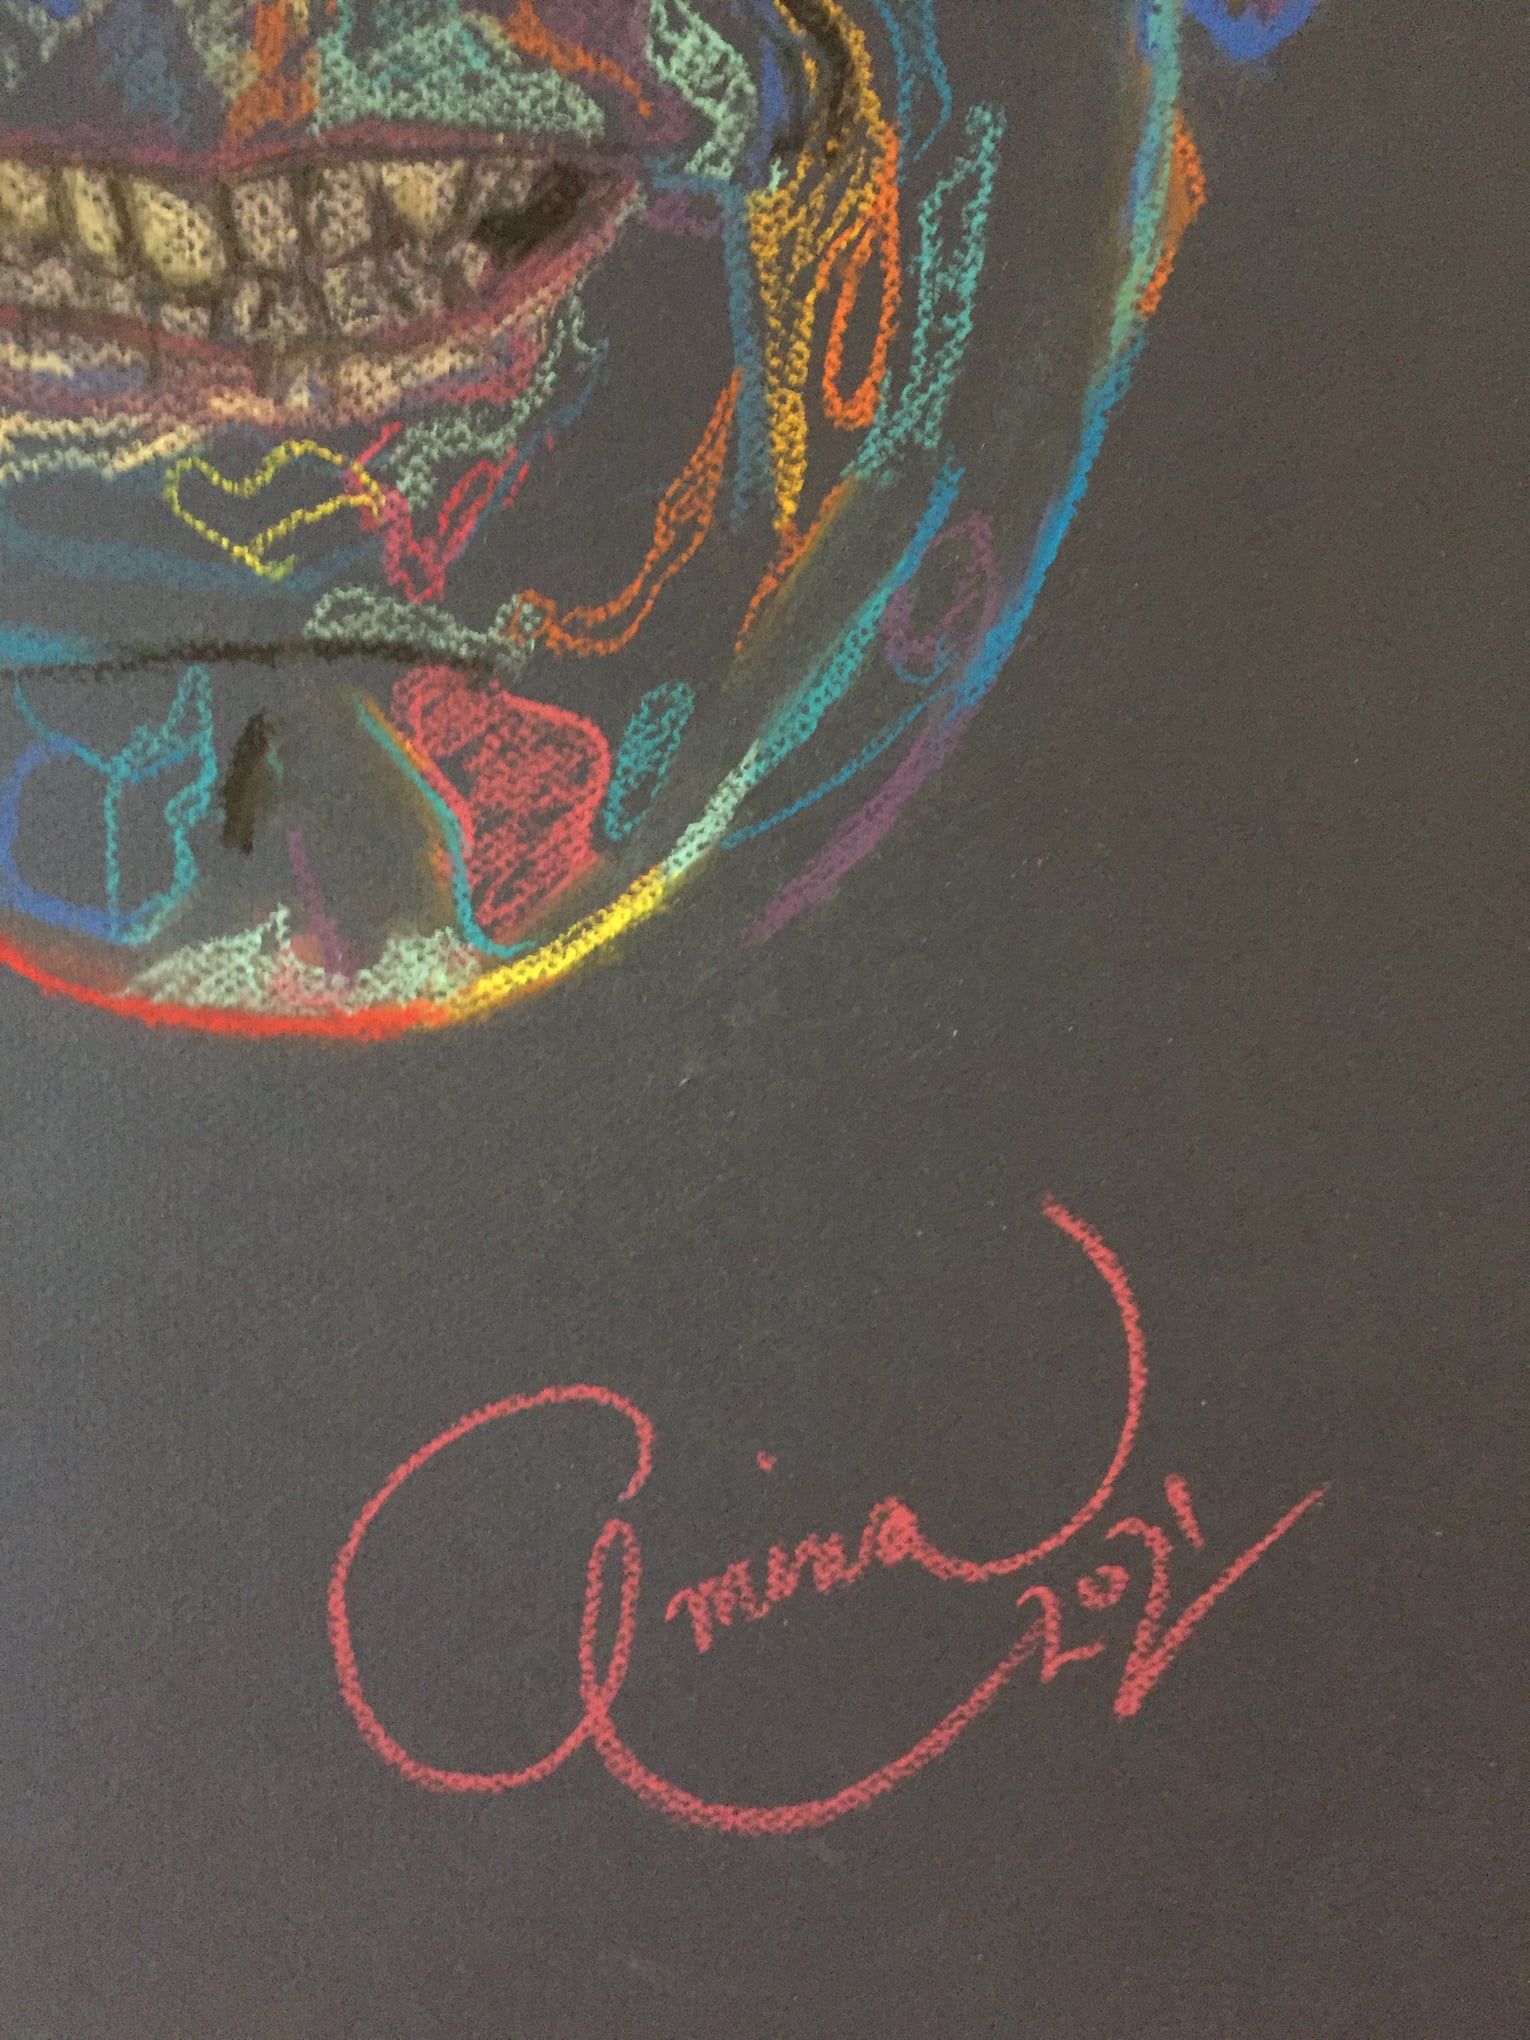 Amina
2021